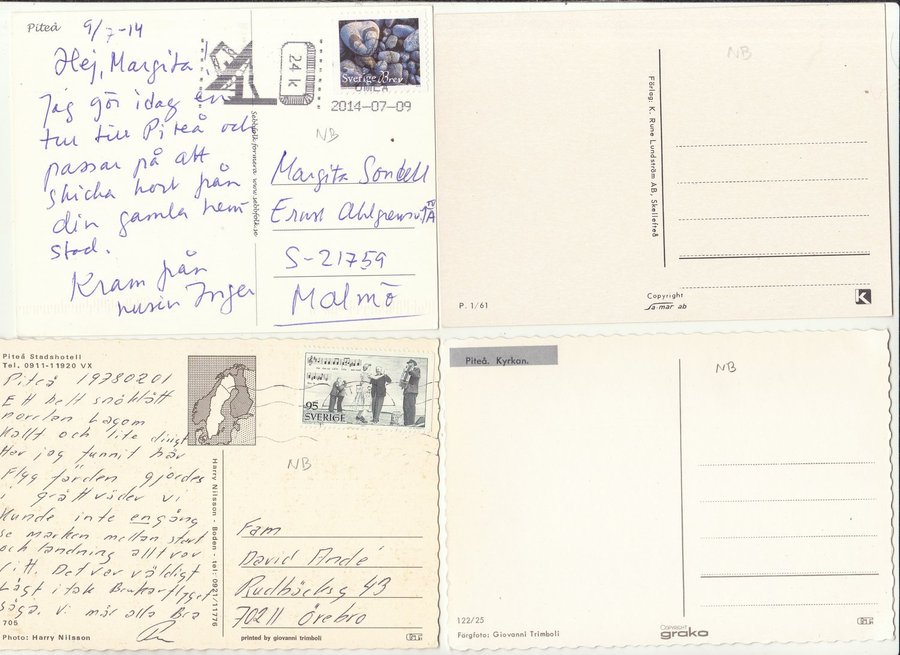 Piteå
9/7-14
Hej, Margita!
Jag gör idag en
tur till Piteå och
passar på att
skicka kort från
din gamla hem
stad.
Kram från
Inger
24 k
Sverige Brev
UMEÅ
2014-07-09
NB
sebbfolk.formera www.sebbfolk.se
Margita Sondell
Ernst Ahlgrens
S-21759
Malmö
NB
Förlag: K. Rune Lundström AB, Skellefteå
P. 1/61
Copyright
Sa-mar ab
K
Piteå Stadshotell
Tel. 0911-11920 VX
Piteå 19780201
Ett helt snöklätt
norrlan
Kallt och lite
Har jag funnit här
Flyg färden gjordes
i gråttväder vi
Kunde inte engång
se marken mellan start
och landning allt var
vitt. Det var väldigt
lågt i tak Brukar flyget
säga. Vi mår alla Bra
705
Photo: Harry Nilsson
95
SVERIGE
NB
Harry Nilsson - Boden - tel: 0921/11776
Fam
David André
Rudbäcksg 43
70211 Örebro
printed by giovanni trimboli
Piteå. Kyrkan.
NB
122/25
Färgfoto: Giovanni Trimboli
Copyright
grako